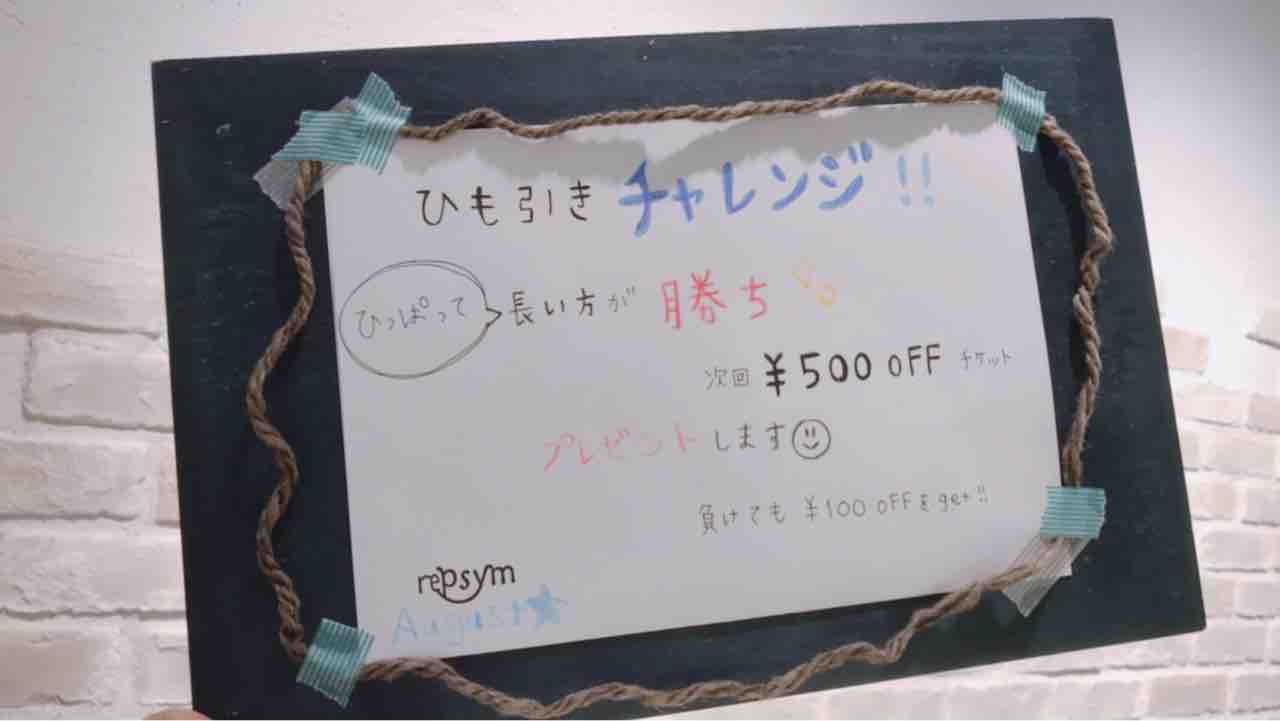 ひも引きチャレンジ!!
ひっぱって 長い方が 勝ち
次回 ¥500 OFF チケット
プレゼントします
負けても ¥100 OFFをget!!
repsym
August